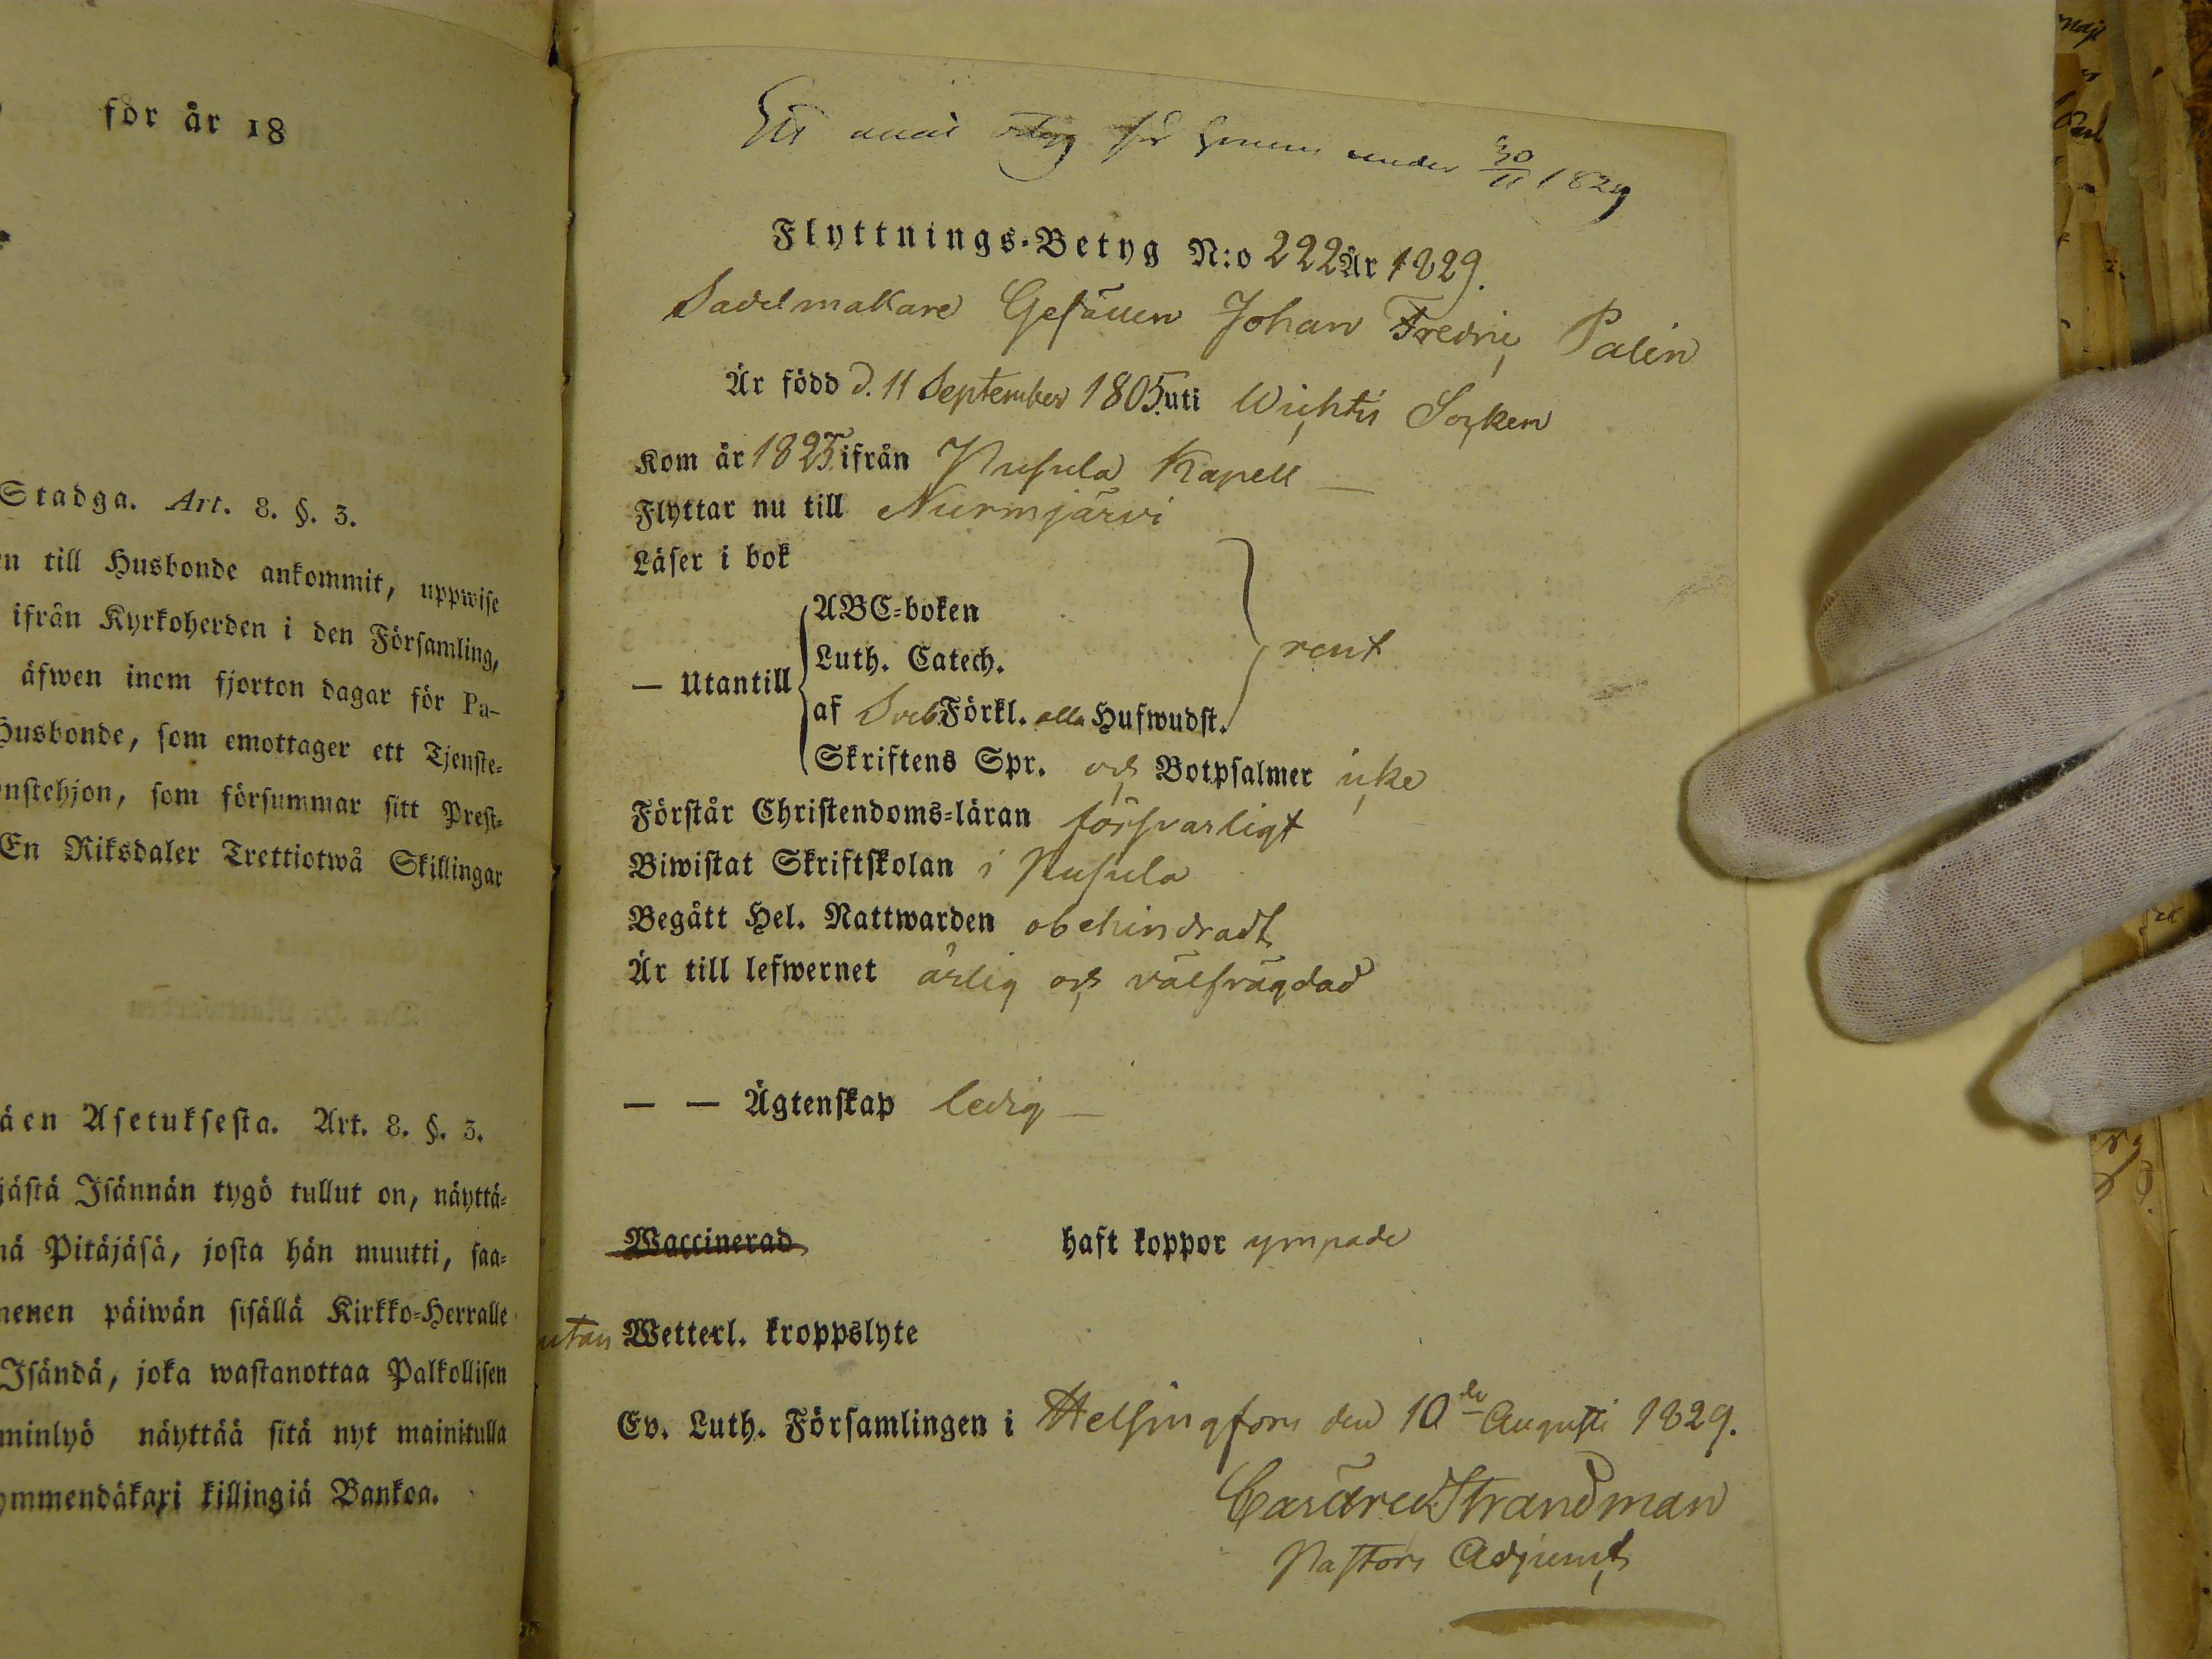 för år 18
Stadga. Art. 8. §. 3.
en till Husbonde ankommit, uppwise
ifrån Kyrkoherden i den Församling,
äfwen inom fjorton dagar för Pa-
Husbonde, som emottager ett Tjenste-
enstehjon, som försummar sitt Prest-
En Riksdaler Trettiotwå Skillingar
äen Asetuksesta. Art. 8. §. 3.
jästä Isännän tygö tullut on, näyttä-
nä Pitäjäsä, josta hän muutti, saa-
menen päiwän sisällä Kirkko-Herralle
Isändä, joka wastanottaa Palkollisen
minlyö näyttää sitä nyt mainitulla
ymmendäkaxi killingiä Bankoa.
under 30/11 1829
Flyttnings-Betyg N:o 222 År 1829.
Sadelmakare Gesällen Johan Fredric Palin
Är född d. 11 September 1805 uti Wichtis Socken
Kom år 1825 ifrån Pusula Kapell —
Flyttar nu till Nurmjärvi
Läser i bok
— Utantill
ABC-boken
Luth. Catech.
af Sveb Förkl. alla Hufwudst.
rent
Skriftens Spr. och Botpsalmer icke
Förstår Christendoms-läran försvarligt
Biwistat Skriftskolan i Pusula
Begått Hel. Nattwarden obehindradt
Är till lefwernet ärlig och välfrägdad
— — Ägtenskap ledig —
Waccinerad haft koppor ympade
utan Wetterl. kroppslyte
Ev. Luth. Församlingen i Helsingfors den 10de Augusti 1829.
Strandman
Pastors Adjunct